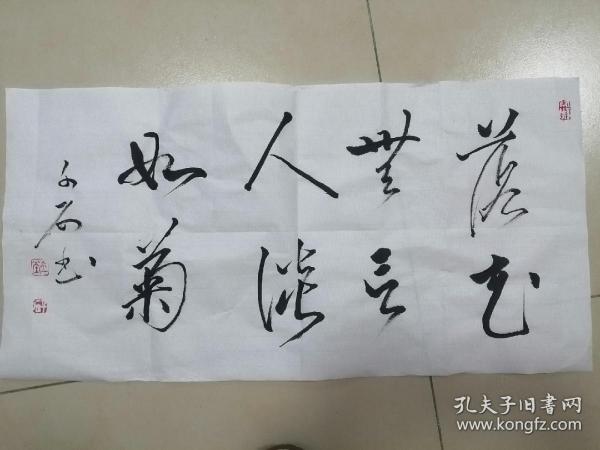 落花
無言
人淡
如菊
石书
孔夫子旧书网
www.kongfz.com